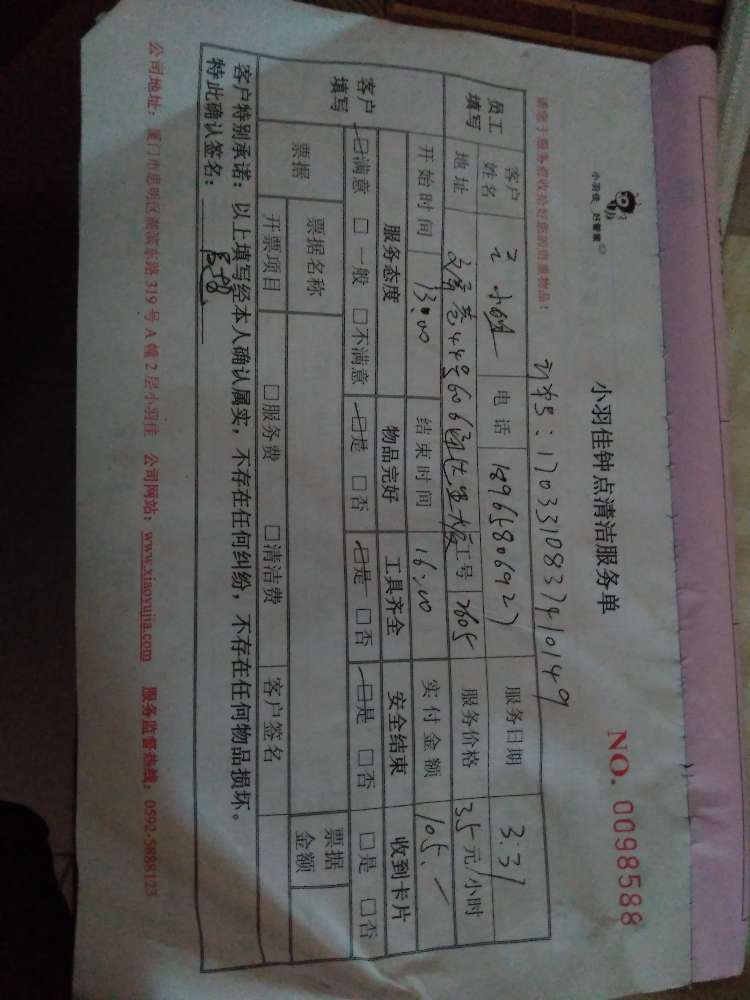 小羽佳 好管家
小羽佳钟点清洁服务单
NO. 0098588
请您于服务前收拾好您的贵重物品!
1703310837410149
员工填写 客户姓名 电话 18965806927 服务日期 3.31
地址 工号 2605 服务价格 35元/小时
开始时间 13:00 结束时间 16:00 实付金额 105.-
客户填写 服务态度 物品完好 工具齐全 安全结束 收到卡片
☑满意 □一般 □不满意 ☑是 □否 ☑是 □否 ☑是 □否 □是 □否
票据 票据名称 票据金额
开票项目 □服务费 □清洁费 客户签名
客户特别承诺:以上填写经本人确认属实,不存在任何纠纷,不存在任何物品损坏。
特此确认签名:
公司地址:厦门市思明区湖滨东路319号A幢2层小羽佳 公司网站:www.xiaoyujia.com 服务监督热线:0592-5888123